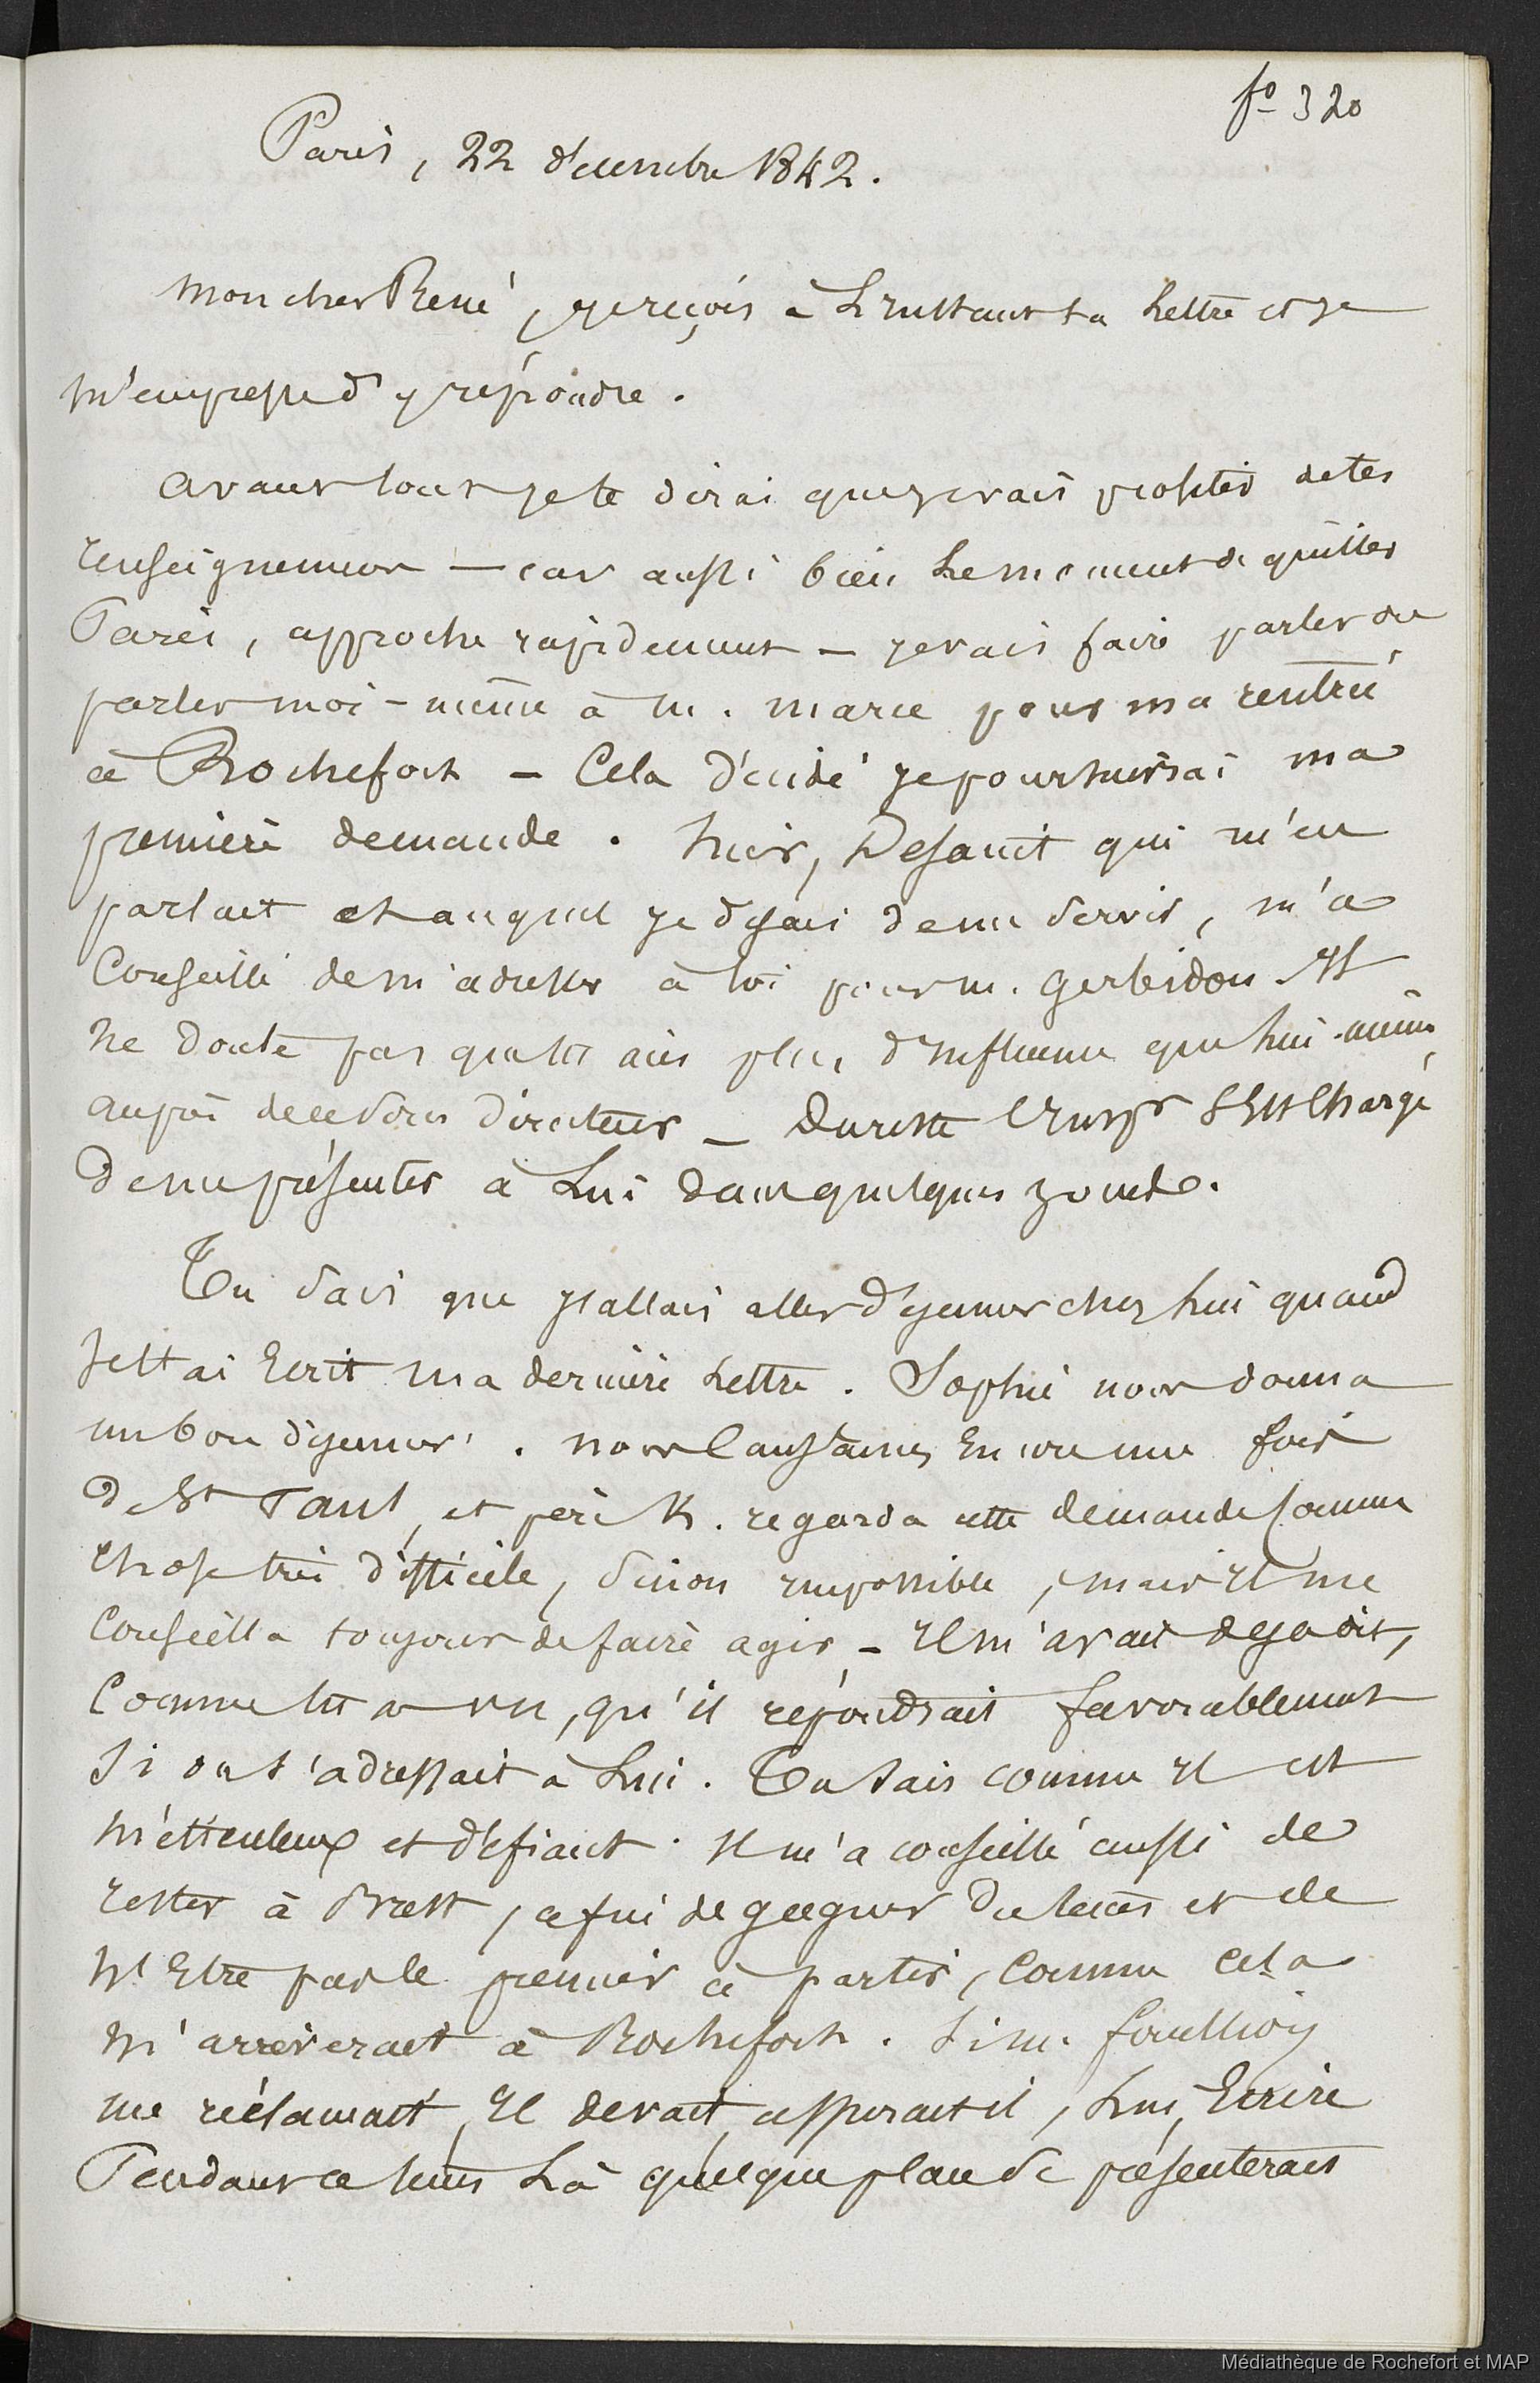 fo 320
Paris, 22 décembre 1842.
Mon cher René, je reçois à l'instant ta lettre et je
m'empresse d'y répondre.
Avant tout je te dirai que je vais profiter de tes
renseignements — car aussi bien le moment de quitter
Paris, approche rapidement — je vais faire parler ou
parler moi-même à M. Marec pour ma rentrée
à Rochefort — Cela décidé je poursuivrai ma
première demande. Hier, Defauit qui m'en
parlait et auquel je disais de me servir, m'a
conseillé de m'adresser à toi pour M. Gerbidon. Il
ne doute pas que tu aies plus d'influence que lui-même
auprès de ce sous directeur — Du reste l'Inspr s'est chargé
de me présenter à lui dans quelques jours.
Tu sais que j'allais aller déjeuner chez lui quand
je t'ai écrit ma dernière lettre. Sophie nous donna
un bon déjeuner. Nous causâmes encore une fois
de St Paul, et père K. regarda cette demande comme
chose très difficile, sinon impossible, mais il me
conseilla toujours de faire agir — Il m'avait déjà dit,
comme tu as vu, qu'il répondrait favorablement
si on s'adressait à lui. Tu sais comme il est
méticuleux et défiant. Il m'a conseillé aussi de
rester à Brest, afin de gagner du temps et de
n'être pas le premier à partir, comme cela
m'arriverait à Rochefort. Si M. Foullioy
me réclamait, il devait, assurait-il, lui écrire
Pendant ce temps là quelque place se présenterait
Médiathèque de Rochefort et MAP